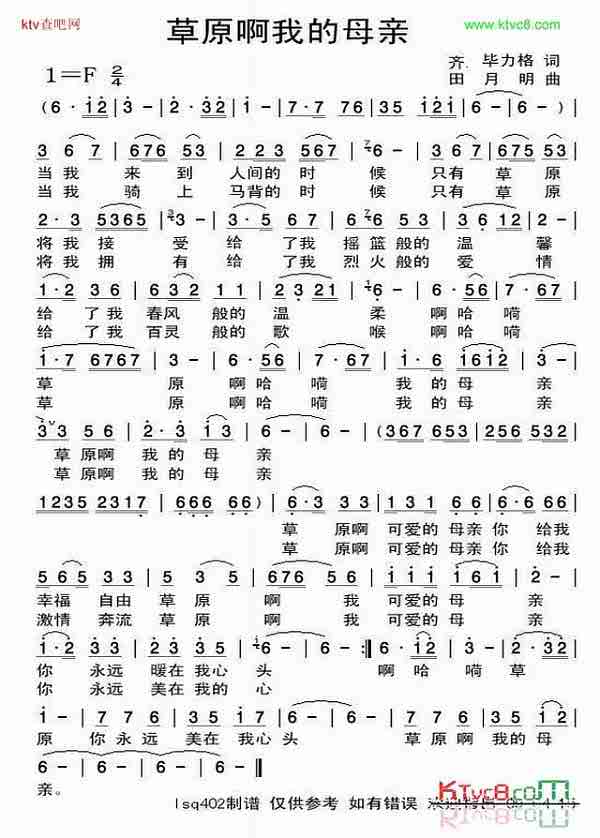 ktv查吧网
www.ktvc8.com
草原啊我的母亲
1=F 2/4
齐.毕力格 词
田 月 明 曲
(6· i2 | 3 - | 2· 32 | i - | 7·7 76 | 35 i2i | 6 - | 6 - )
3 6 7 | 676 53 | 2 2 3 567 | 6 - | 3 3 6 7 | 676 53
当我 来 到 人间的 时 候 只有 草 原
当我 骑 上 马背的 时 候 只有 草 原
2· 3 5365 | 3 - | 3· 5 67 | 6 5 2 3 | 3 6 i2 | 5 - |
将我 接 受 给 了我 摇篮般的 温 馨
将我 拥 有 给 了我 烈火般的 爱 情
1· 2 3 6 | 5 6 1 7 | 2 3 2 1 | 6 - | 6 7 6 5 | 3 -
给 了我 春风 般的 温 柔 啊哈 嗬
给 了我 百灵 般的 歌 喉 啊哈 嗬
i· 7 6767 | 3 - | 2 3 5 2 | 3 - 7·6 5 3 | i· 6 i6i2 | 3 -
草 原 啊哈 嗬 我 的 母 亲
草 原 啊哈 嗬 我 的 母 亲
3 3 5 6 | 2· 3 i3 | 6 - | 6 - | (367 653 | 256 532
草 原啊 我 的 母 亲
草 原啊 我 的 母 亲
1235 2317 | 666 66 ) | 6·3 33 | 1 3 1 6 6 | 6·6 66
草 原啊 可爱的 母亲你 给我
草 原啊 可爱的 母亲你 给我
5 6 5 3 3 | 2·3 5 3 | 676 5 6 | i i i | i6i | 2 - |
幸福 自由 草 原 啊 我 可爱的 母 亲
激情 奔流 草 原 啊 我 可爱的 母 亲
i·2 33 | 23 23 57 | 6 - | 6 - :‖ i·2 3 3 | 2· 32
你 永远 暖在 我心 头 啊 哈 嗬 草
你 永远 美在 我的 心
i - | 7·7 7 6 | 35 i7 | 6 - | 6 - | 3 5 | i 7 |
原 你 永 远 美在 我心头 草 原 啊 我的 母
6 - | 6 - | 6 - | 6 - ‖
亲。
lsq402制谱 仅供参考 如有错误
KTvc8.com